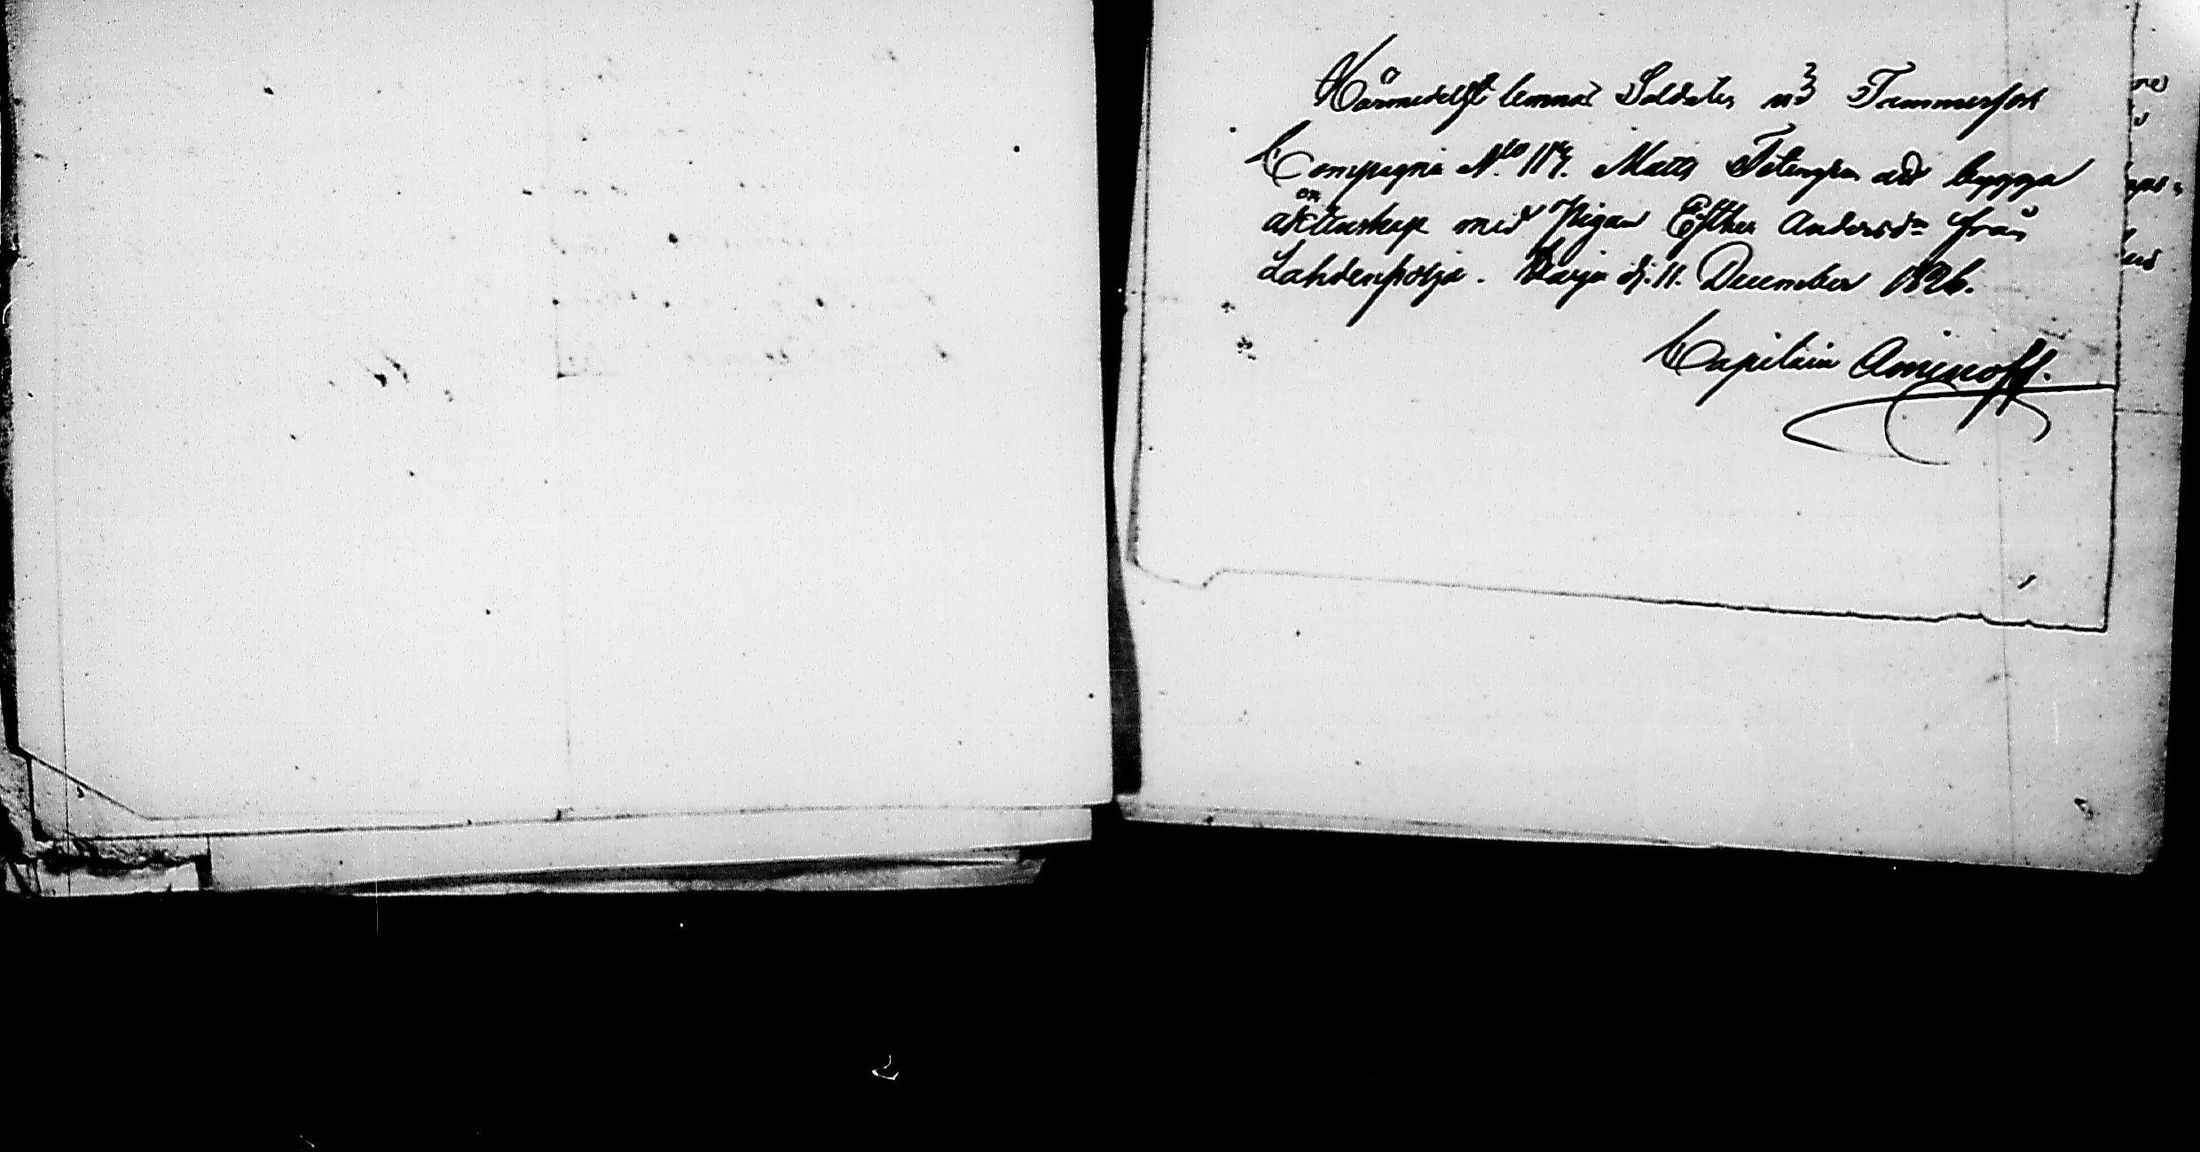 Härmedelst lemnas Soldaten vid Tammerfors
Compagnie No 117. Matts att bygga
äktenskap med Pigan Esther Andersdr från
Lahdenpohja. d. 11. December 1826.
Capitain Aminoff.